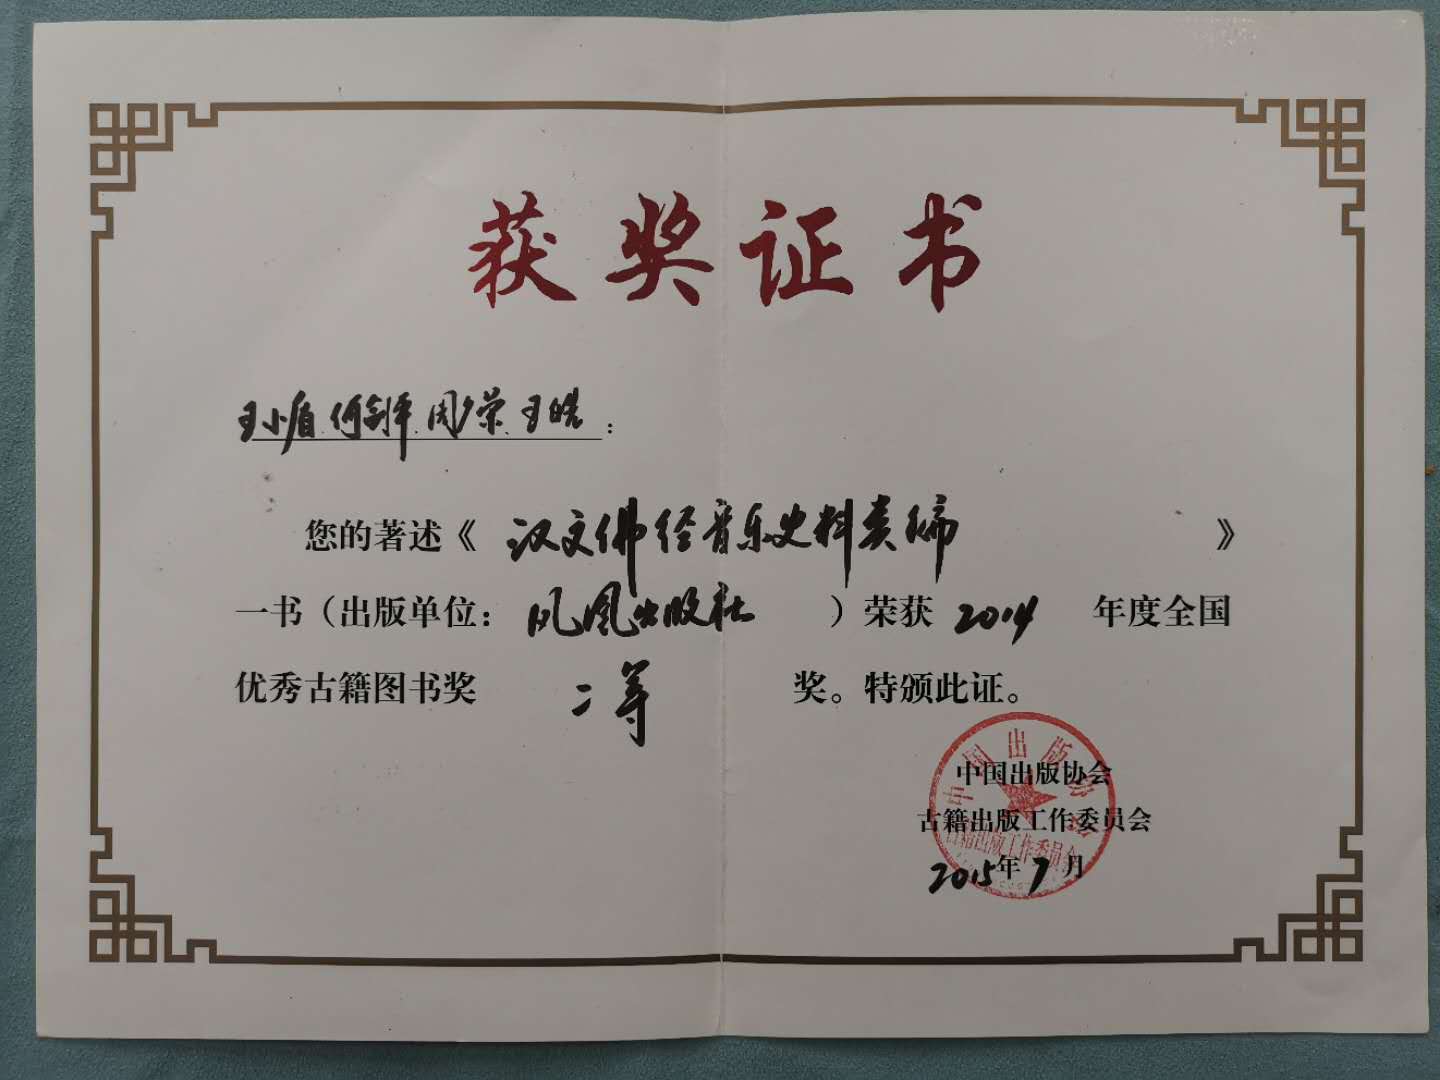 获奖证书
王小盾 何剑平 周广荣 王皓：
您的著述《汉文佛经音乐史料类编》
一书（出版单位：凤凰出版社）荣获 2014 年度全国
优秀古籍图书奖 二等 奖。特颁此证。
中国出版协会
古籍出版工作委员会
2015年7月
中国出版协会
古籍出版工作委员会